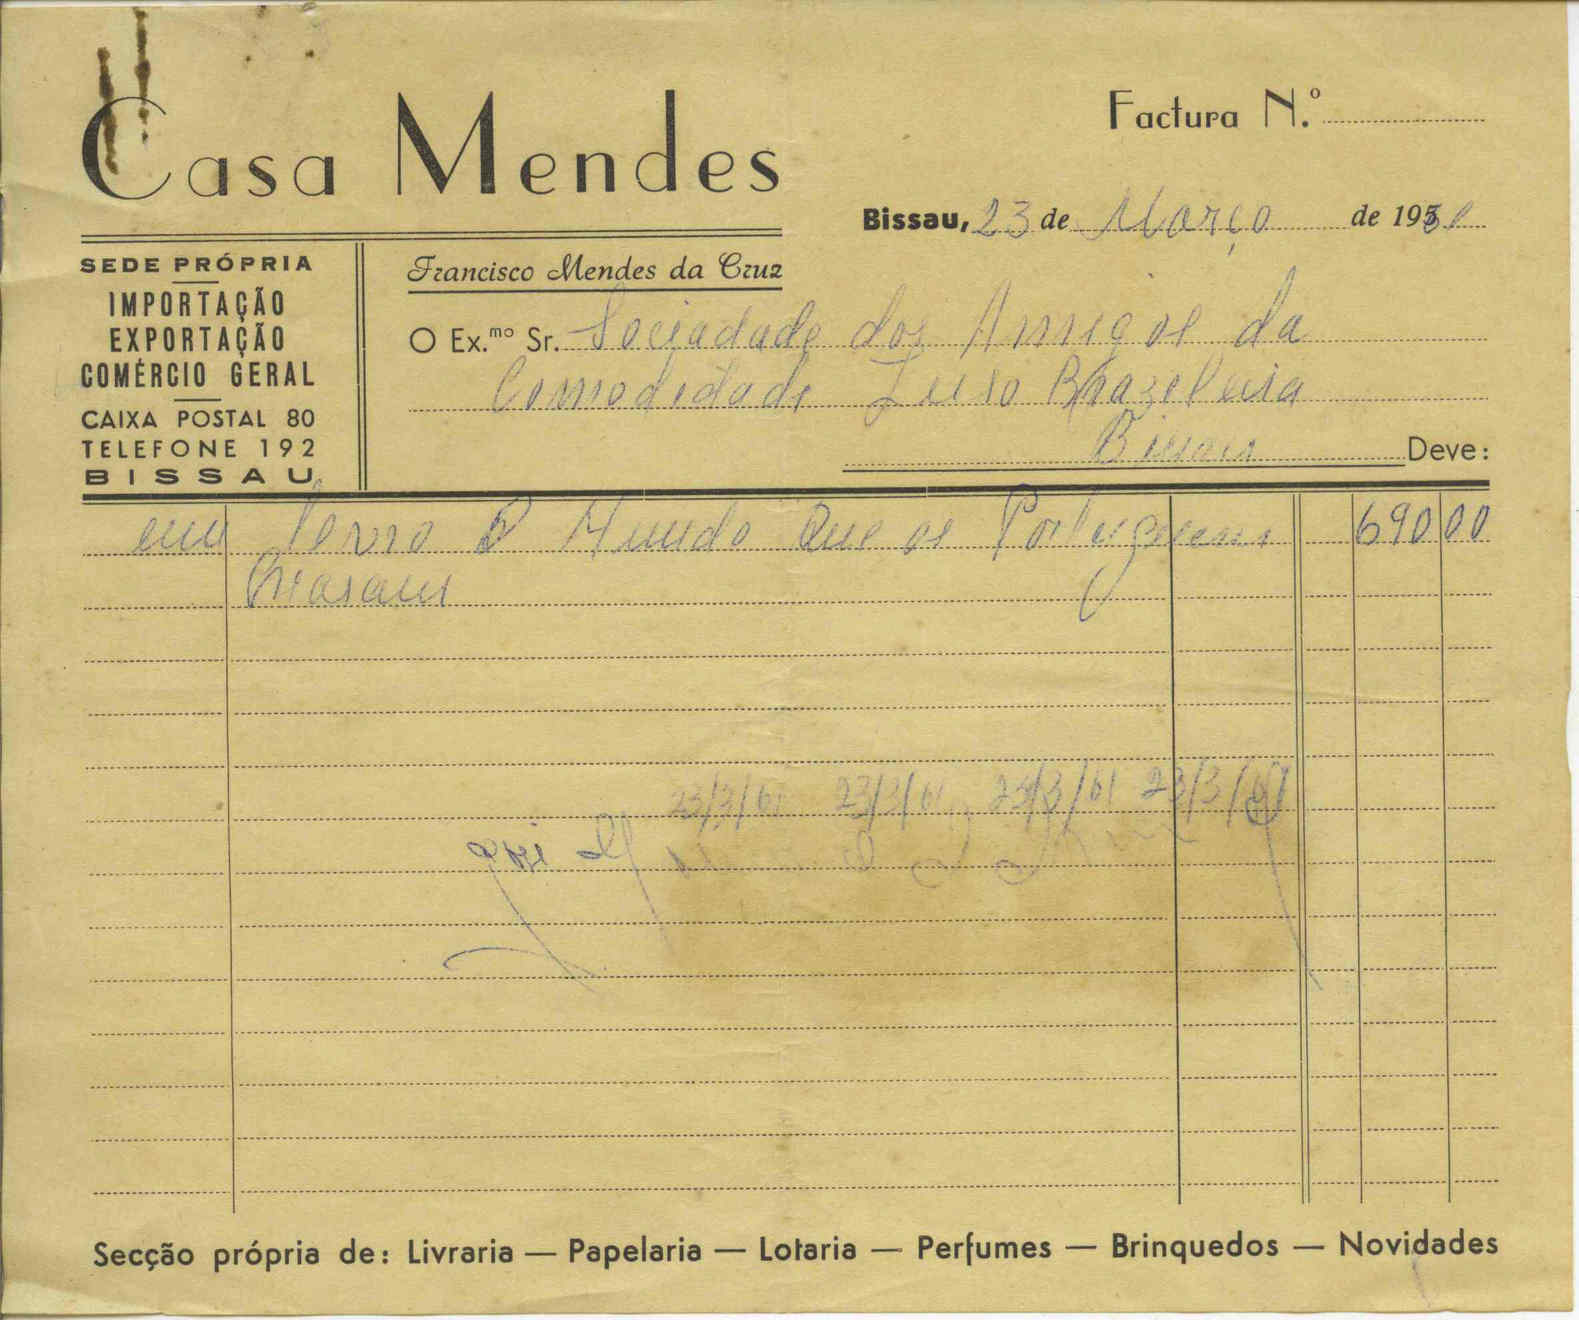 Casa Mendes
Factura N.º
Bissau, 23 de Março de 1961
SEDE PRÓPRIA
IMPORTAÇÃO
EXPORTAÇÃO
COMÉRCIO GERAL
CAIXA POSTAL 80
TELEFONE 192
BISSAU
Francisco Mendes da Cruz
O Ex.mo Sr. Sociadade dos Amigos da
Comodidade Luso Brazeleira
Bissau Deve:
um O Mundo Que os Portugueses 690 00
Criaram
23/3/61 23/3/61 23/3/61 23/3/61
Secção própria de: Livraria — Papelaria — Lotaria — Perfumes — Brinquedos — Novidades